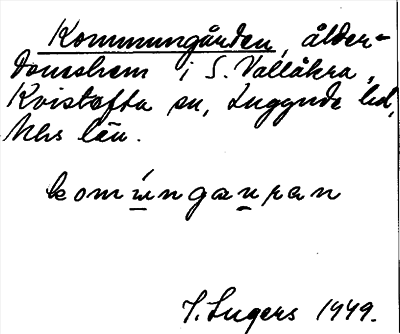 Kommungården, ålder-
domshem i S. Vallåkra,
Kvistofta sn, Luggude hd,
Mhs län.
komúngaʋran
I. Ingers 1949.